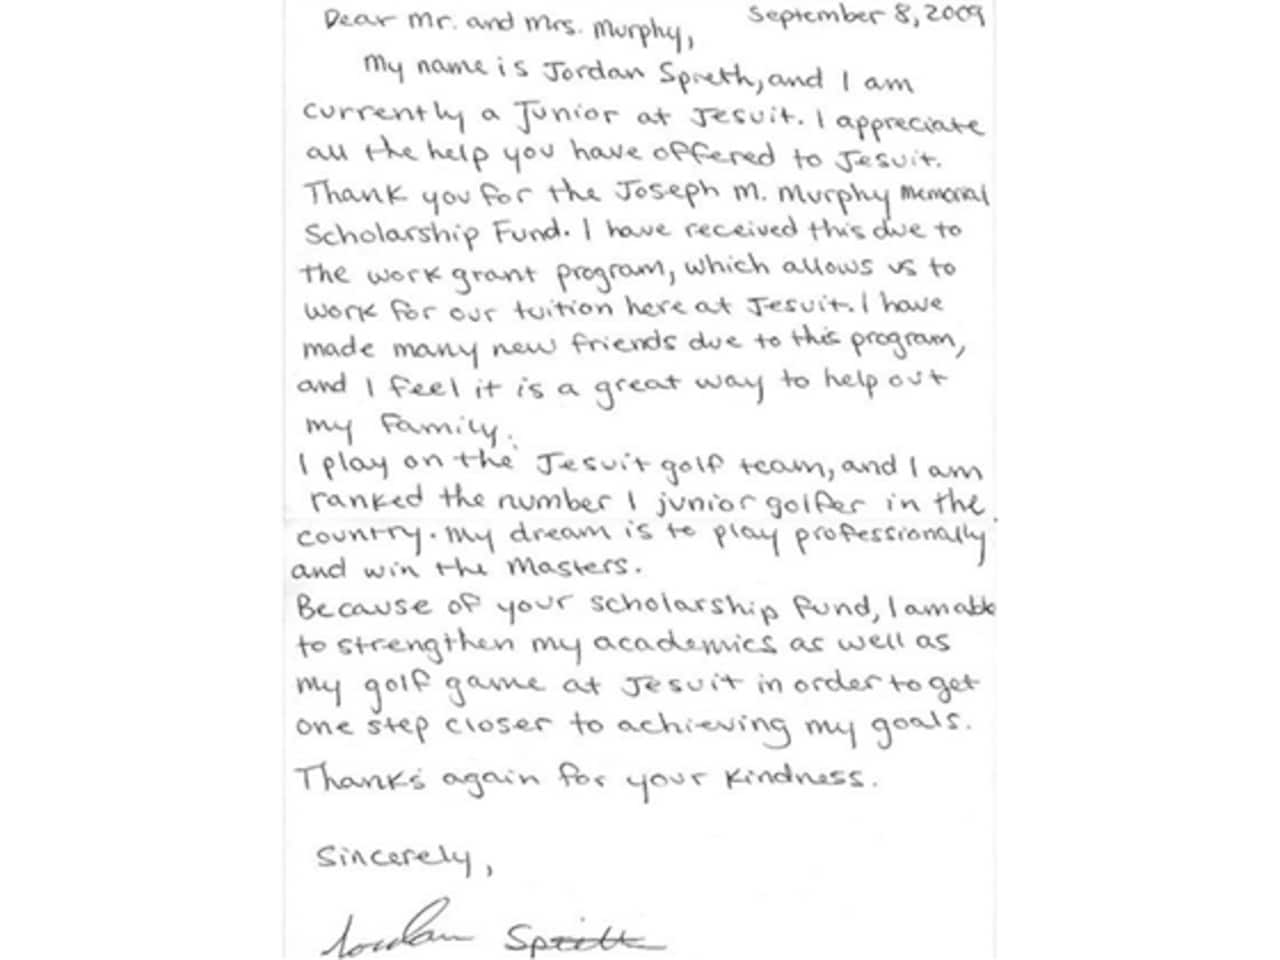 September 8, 2009
Dear Mr. and Mrs. Murphy,
My name is Jordan Spreth, and I am
currently a Junior at Jesuit. I appreciate
all the help you have offered to Jesuit.
Thank you for the Joseph M. Murphy Memorial
Scholarship Fund. I have received this due to
the work grant program, which allows us to
work for our tuition here at Jesuit. I have
made many new friends due to this program,
and I feel it is a great way to help out
my family.
I play on the Jesuit golf team, and I am
ranked the number 1 junior golfer in the
country. My dream is to play professionally
and win the Masters.
Because of your scholarship fund, I am able
to strengthen my academics as well as
my golf game at Jesuit in order to get
one step closer to achieving my goals.
Thanks again for your kindness.
Sincerely,
Jordan Spreth